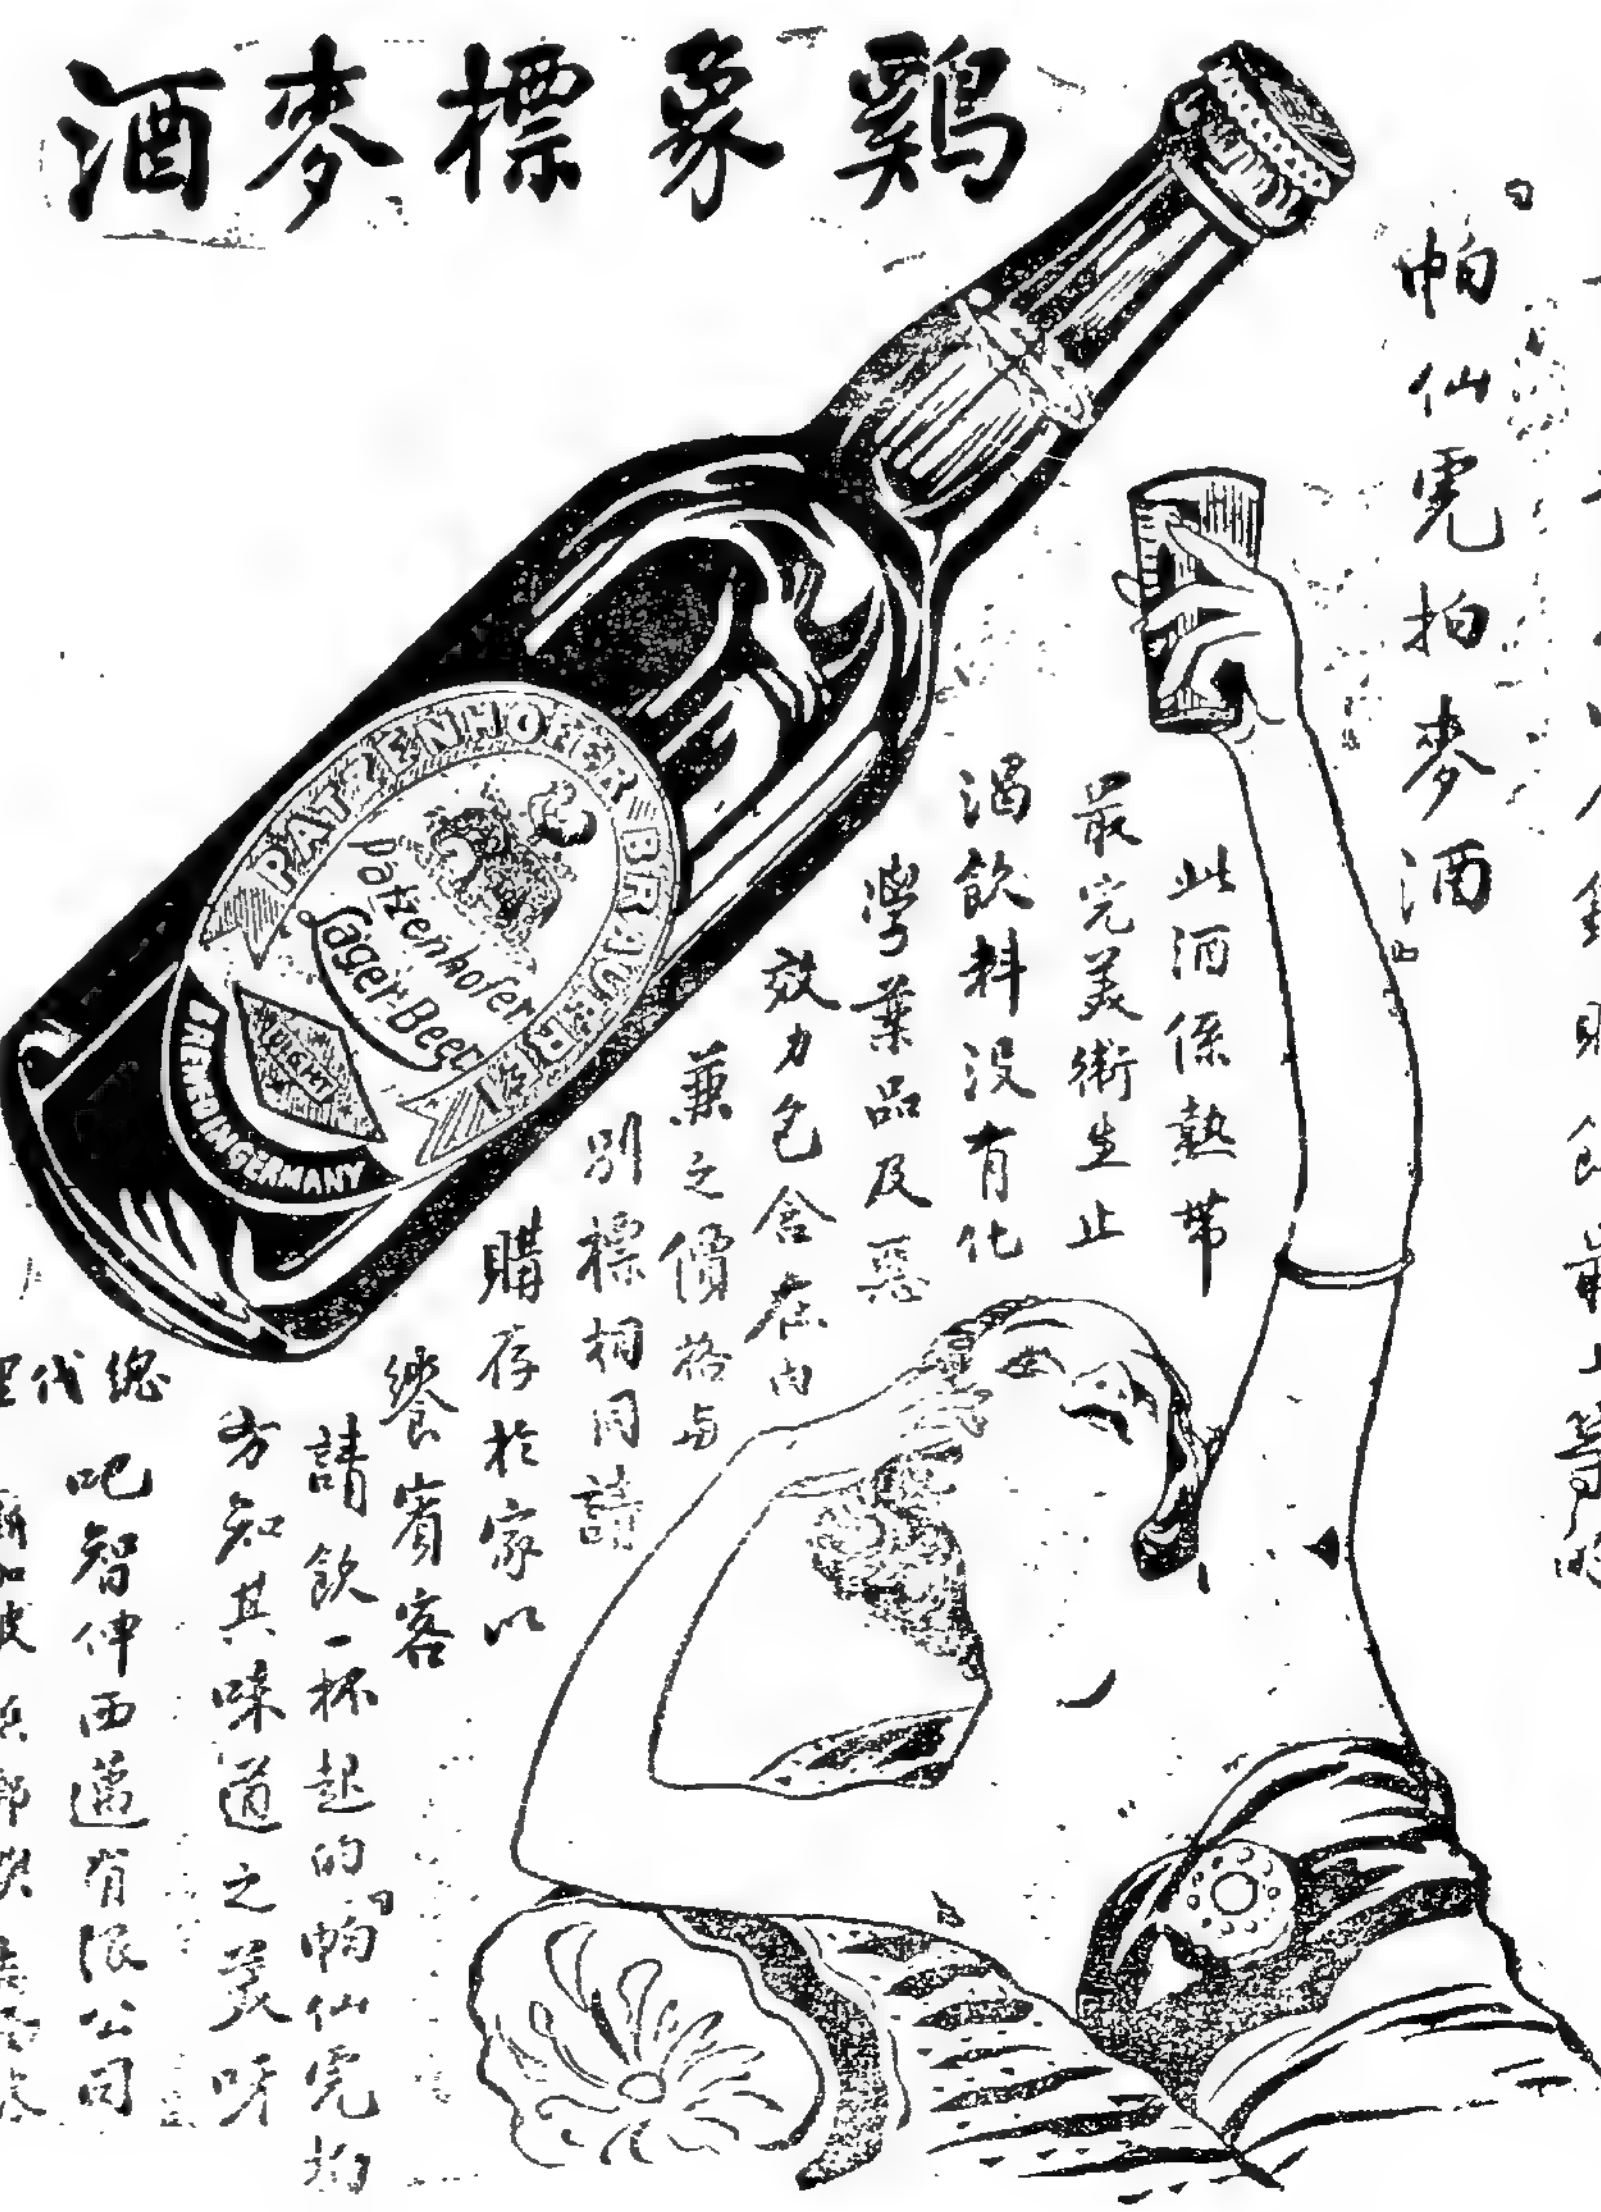 鷄象標麥酒
帕仙雩拍麥酒
此酒係熱帶
最完美衛生止
渴飲料没有化
學葉品及惡
效力包含在内
兼之價格与
别標相同請
購存於家以
饗賓客
請飲一杯起的帕仙雩拍
方知其味道之美呀
總代理
吧智伸西邁有限公司
PATZENHOFER BRAUEREI
Patzenhofer
Lager-Beer
LIGHT
BREWED IN GERMANY